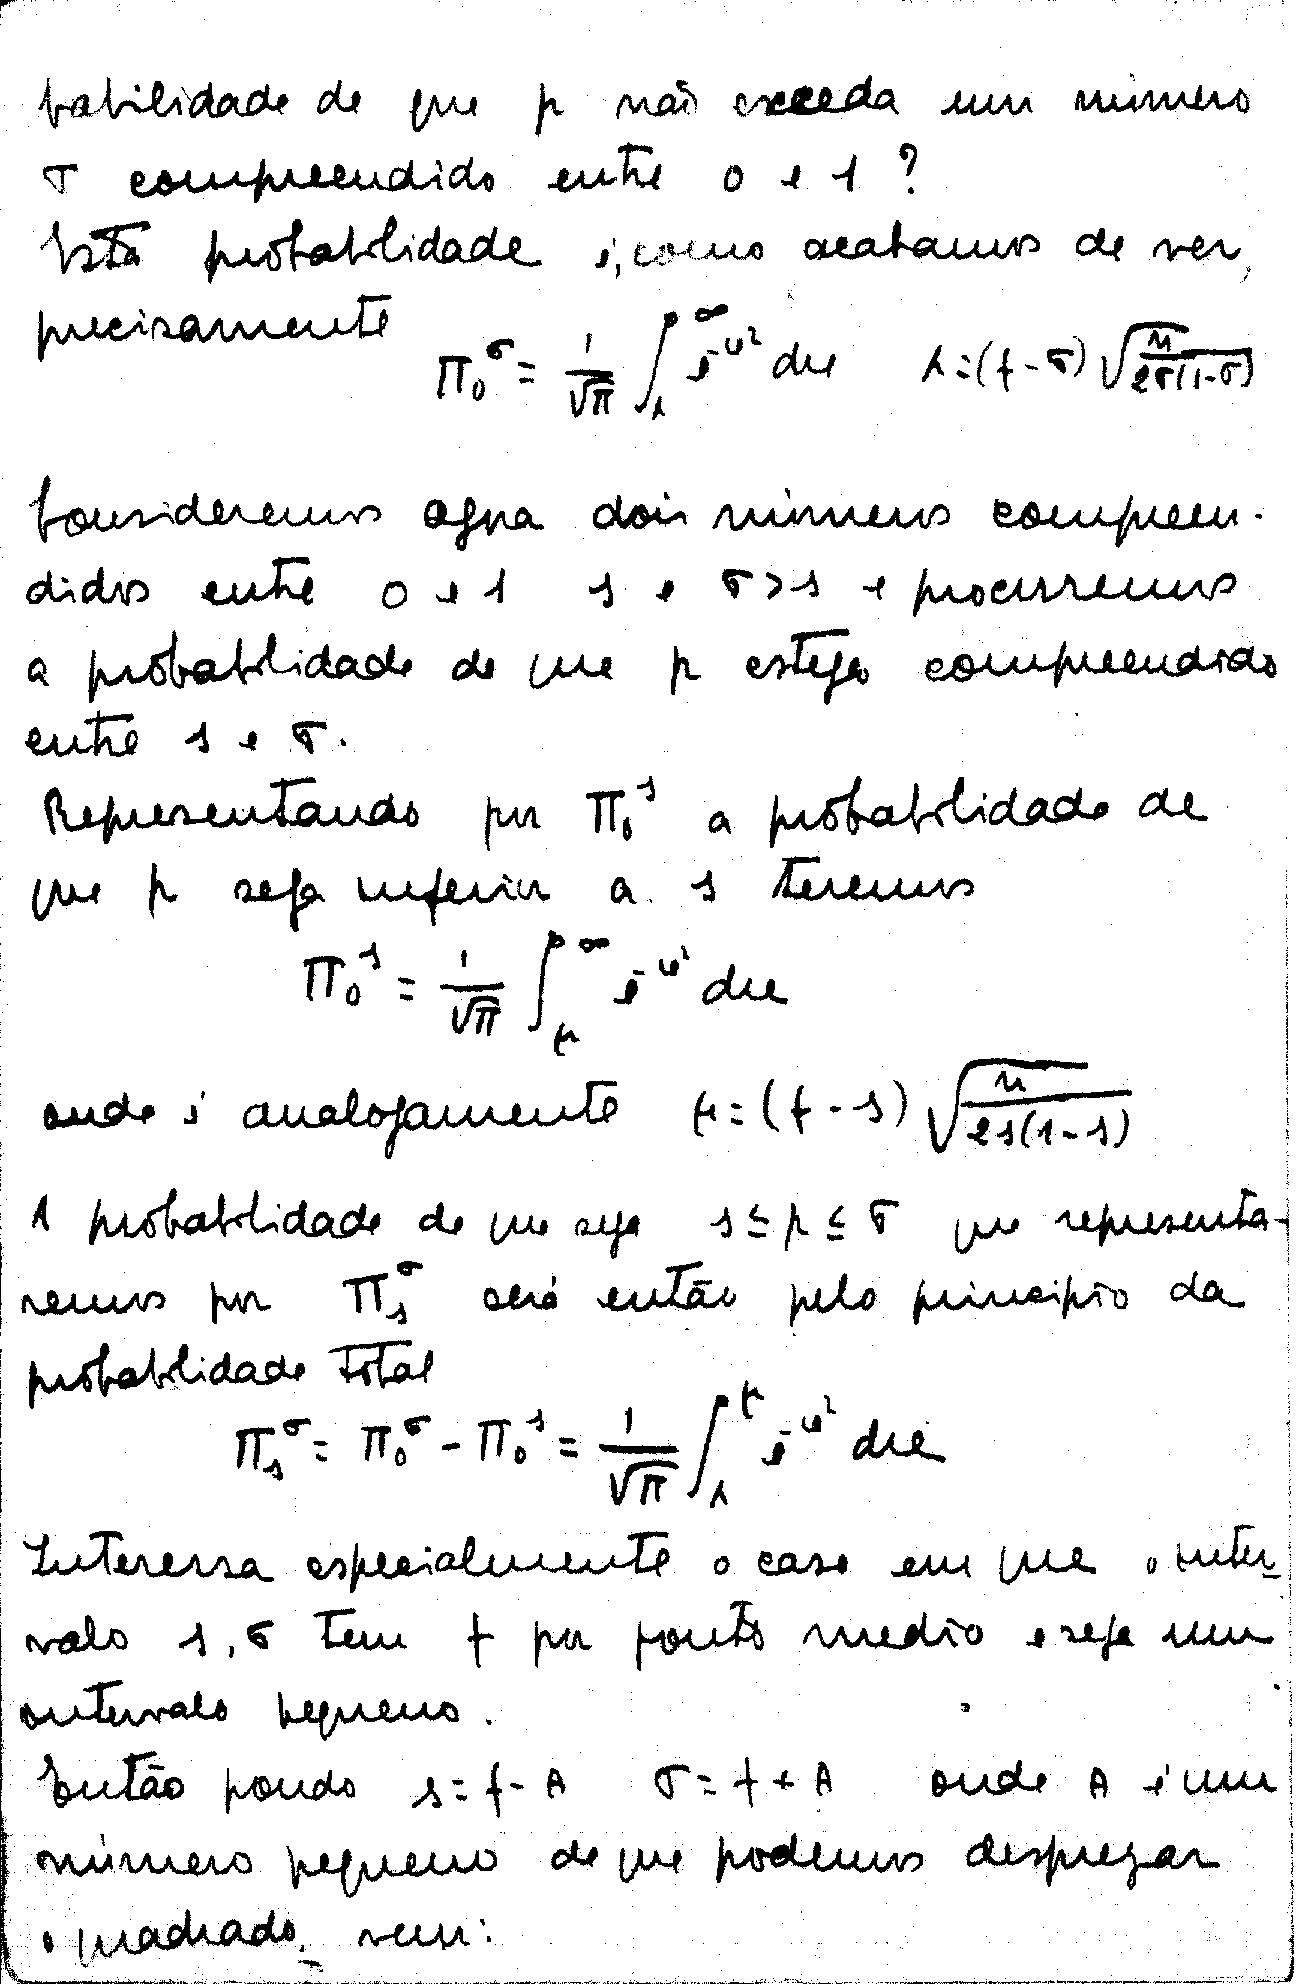 babilidade de que p não exceda um número
σ compreendido entre 0 e 1 ?
Esta probabilidade é, como acabamos de ver,
precisamente
Π₀^σ = 1/√π ∫_λ^∞ e^{-u²} du   λ = (f - σ) √(n / 2σ(1-σ))
Consideremos agora dois números compreen-
didos entre 0 e 1 s e σ > s e procuremos
a probabilidade de que p esteja compreendido
entre s e σ.
Representando por Π₀^s a probabilidade de
que p seja inferior a s teremos
Π₀^s = 1/√π ∫_μ^∞ e^{-u²} du
onde é analogamente μ = (f - s) √(n / 2s(1-s))
A probabilidade de que seja s ≤ p ≤ σ que representa-
remos por Π_s^σ será então pelo principio da
probabilidade total
Π_s^σ = Π₀^σ - Π₀^s = 1/√π ∫_λ^μ e^{-u²} du
Interessa especialmente o caso em que o inter-
valo s, σ tem f por ponto medio e seja um
intervalo pequeno.
Então pondo s = f - A   σ = f + A   onde A é um
número pequeno de que podemos desprezar
o quadrado, vem: